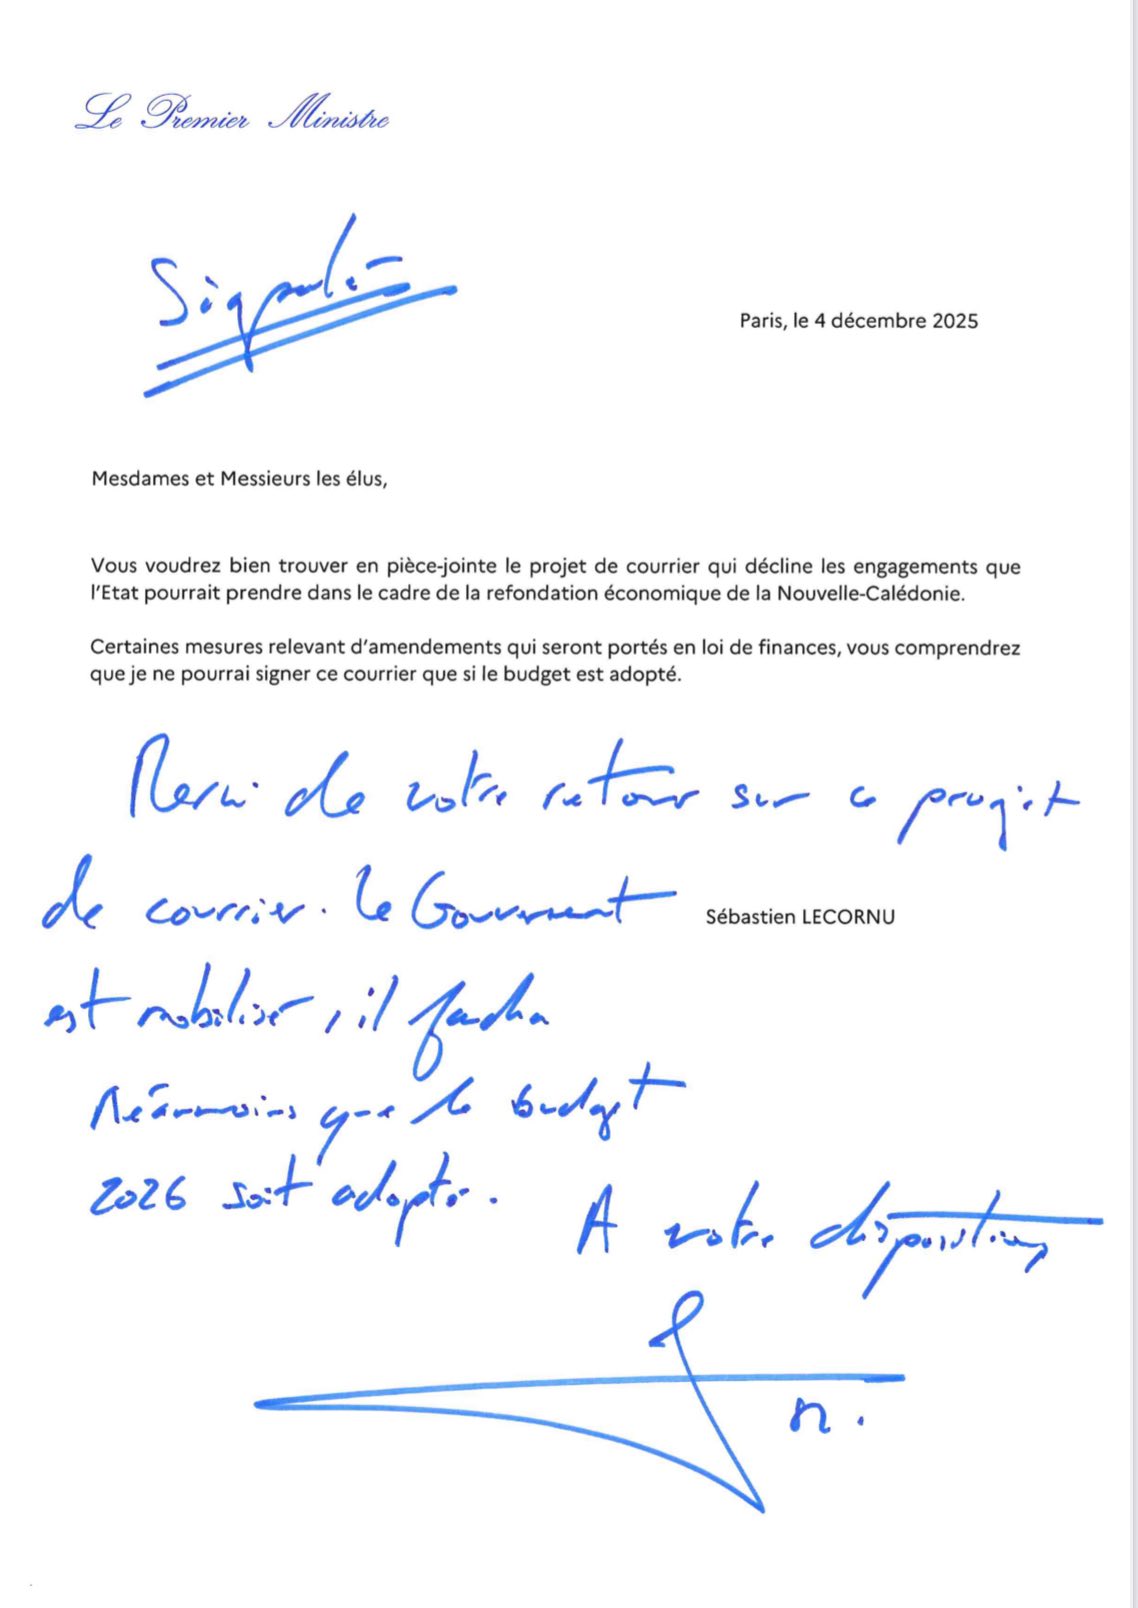 Le Premier Ministre
Signalé
Paris, le 4 décembre 2025
Mesdames et Messieurs les élus,
Vous voudrez bien trouver en pièce-jointe le projet de courrier qui décline les engagements que
l'Etat pourrait prendre dans le cadre de la refondation économique de la Nouvelle-Calédonie.
Certaines mesures relevant d'amendements qui seront portés en loi de finances, vous comprendrez
que je ne pourrai signer ce courrier que si le budget est adopté.
Merci de votre retour sur ce projet
de courrier. Le Gouvernement
Sébastien LECORNU
est mobilisé, il faudra
Néanmoins que le budget
2026 soit adopté.
A votre disposition